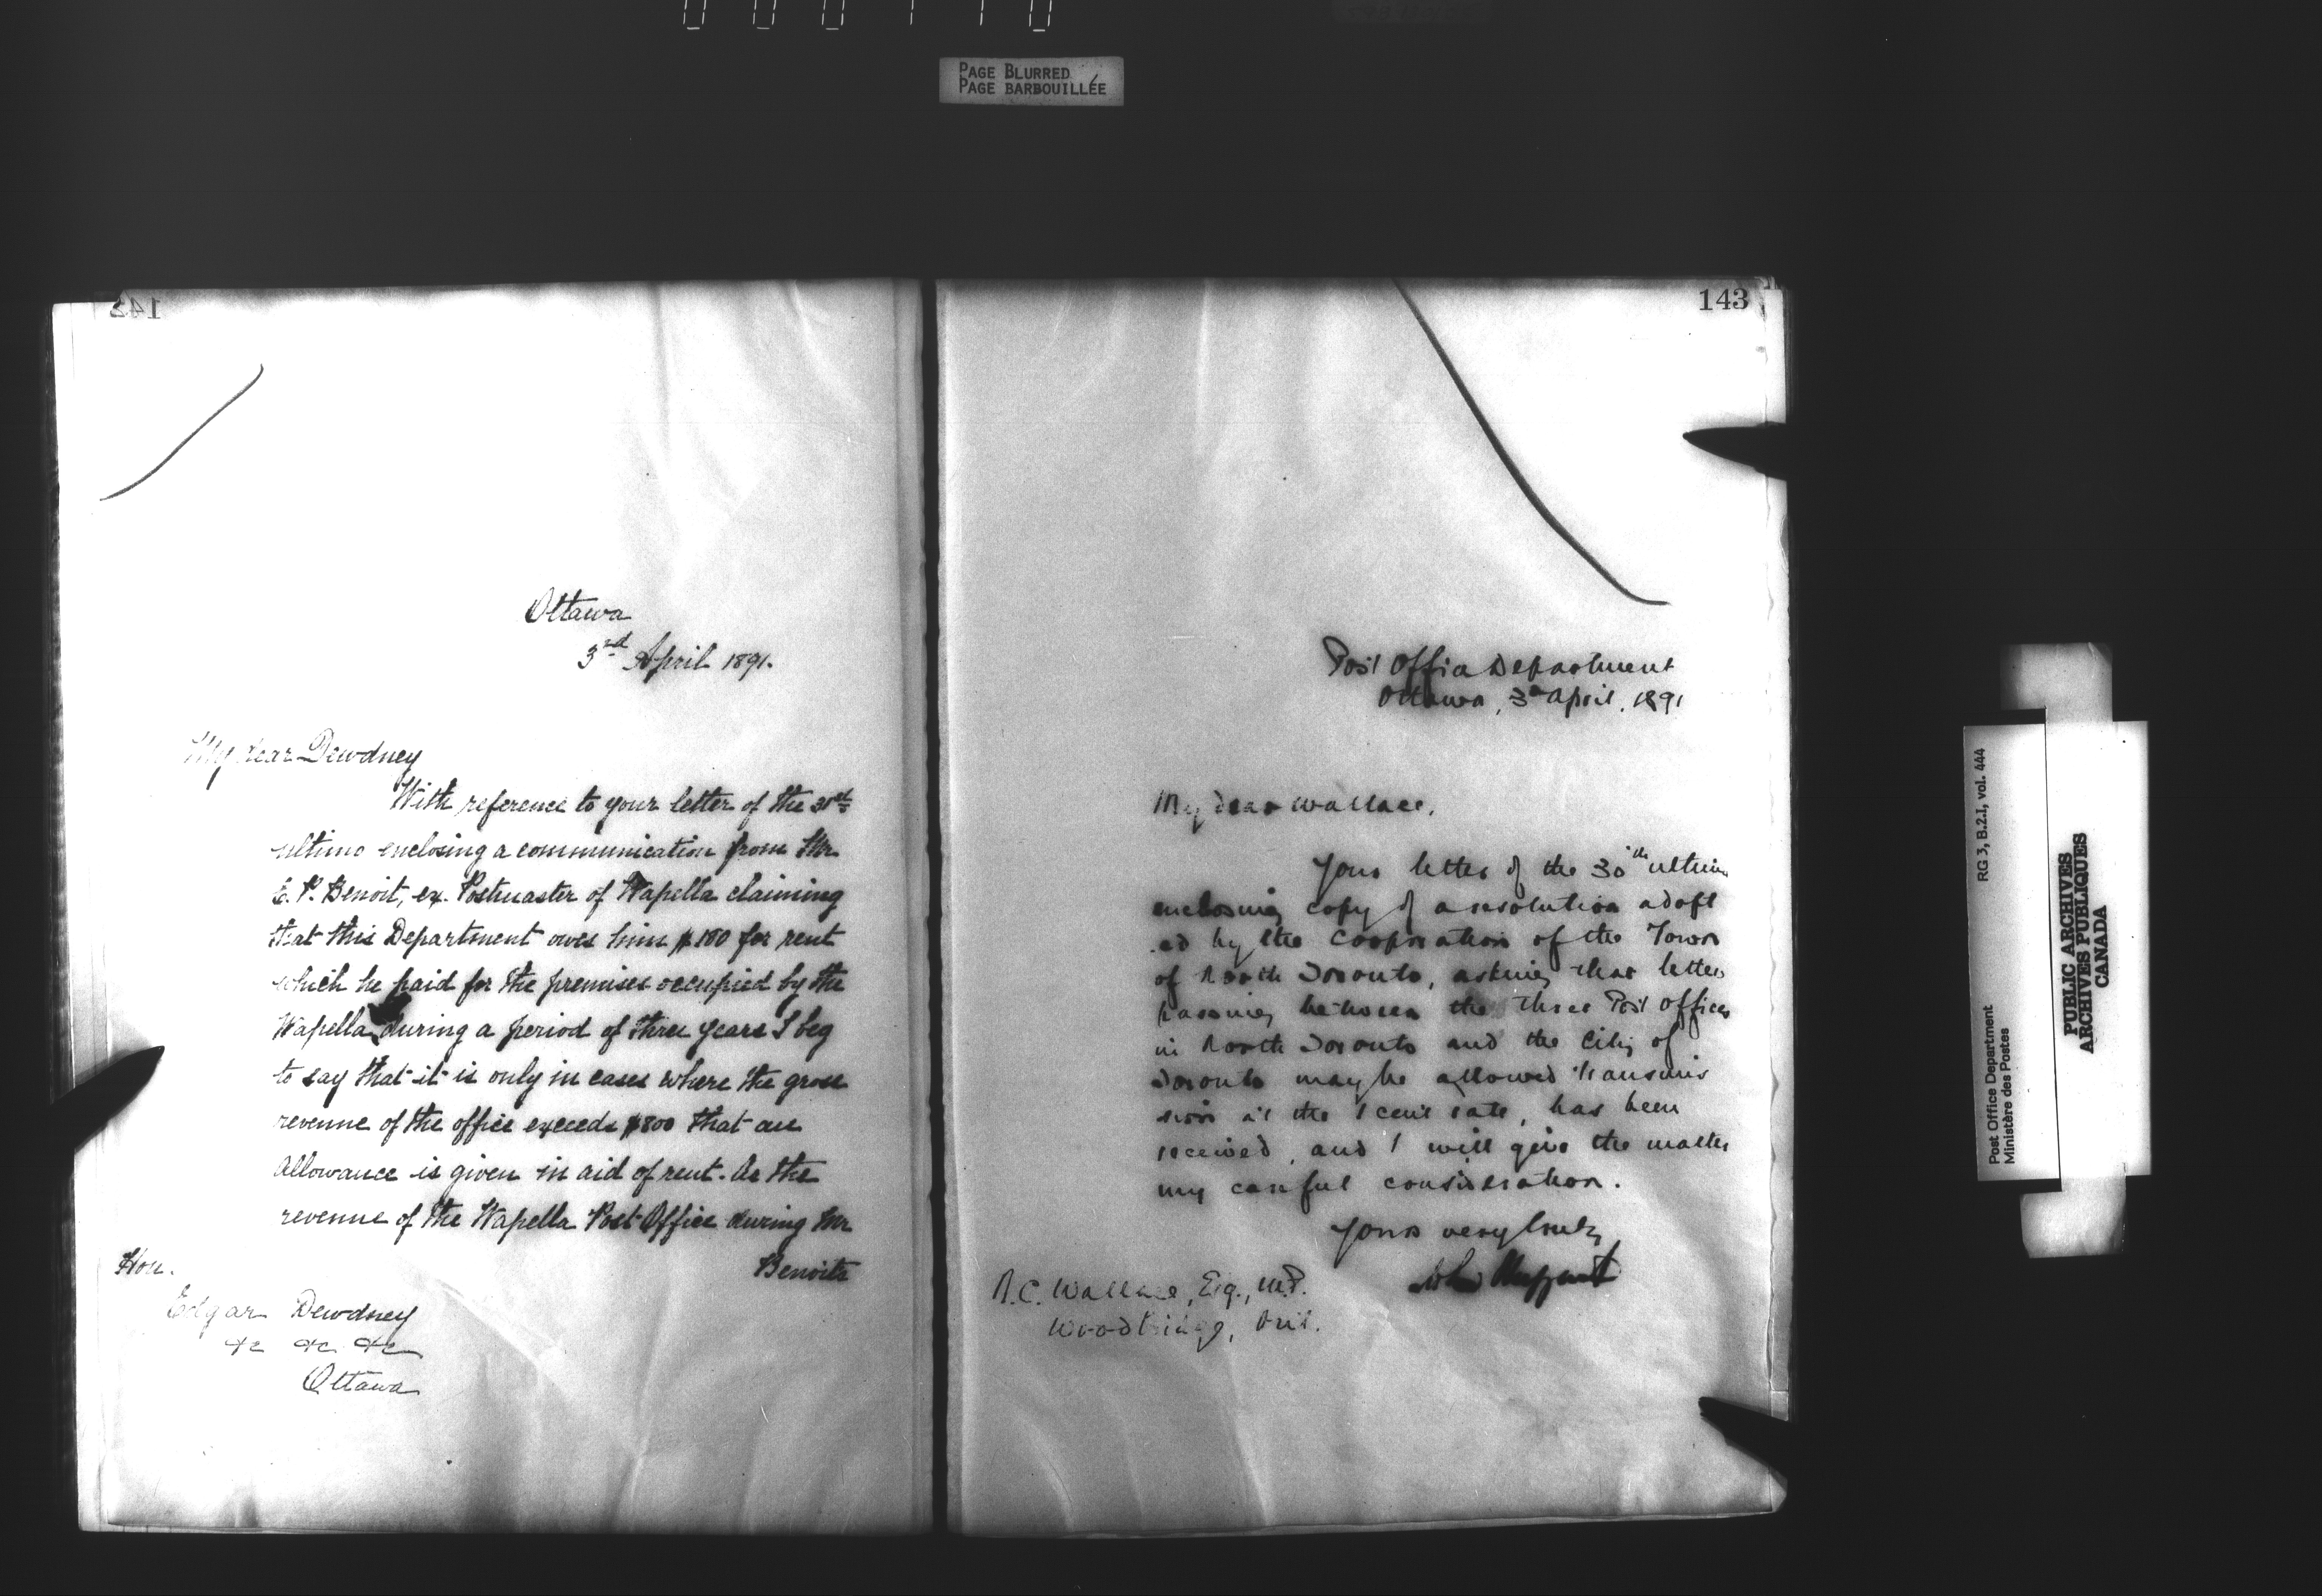 PAGE BLURRED
PAGE BARBOUILLÉE
143
Ottawa
3rd April 1891.
My dear Dewdney
With reference to your letter of the 31st
ultimo enclosing a communication from Mr
E. P. Benoit, ex. Postmaster of Wapella claiming
that this Department owes him $180 for rent
which he paid for the premises occupied by the
Wapella during a period of three years I beg
to say that it is only in cases where the gross
revenue of the office exceeds $800 that an
allowance is given in aid of rent. As the
revenue of the Wapella Post Office during Mr
Benoits
Hon.
Edgar Dewdney
&c &c &c
Ottawa
143
Post Office Department
Ottawa, 3d April, 1891
My dear Wallace,
Your letter of the 30th ultimo
enclosing copy of a resolution adopt
ed by the Corporation of the Town
of North Toronto, asking that letters
passing between the three Post Offices
in North Toronto and the City of
Toronto may be allowed transmis
sion at the 1 cent rate, has been
received, and I will give the matter
my careful consideration.
Yours very truly
John Haggart
N.C. Wallace, Esq., M.P.
Woodbridge, Ont.
RG 3, B.2.1, vol. 444
Post Office Department
Ministère des Postes
PUBLIC ARCHIVES
ARCHIVES PUBLIQUES
CANADA